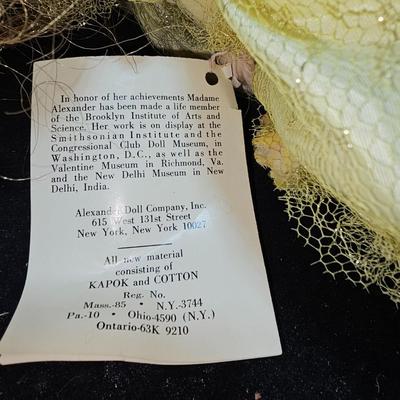 In honor of her achievements Madame
Alexander has been made a life member
of the Brooklyn Institute of Arts and
Science. Her work is on display at the
Smithsonian Institute and the
Congressional Club Doll Museum, in
Washington, D.C., as well as the
Valentine Museum in Richmond, Va.
and the New Delhi Museum in New
Delhi, India.
Alexander Doll Company, Inc.
615 West 131st Street
New York, New York 10027
All new material
consisting of
KAPOK and COTTON
Reg. No.
Mass.-85 • N.Y.-3744
Pa.-10 • Ohio-4590 (N.Y.)
Ontario-63K 9210